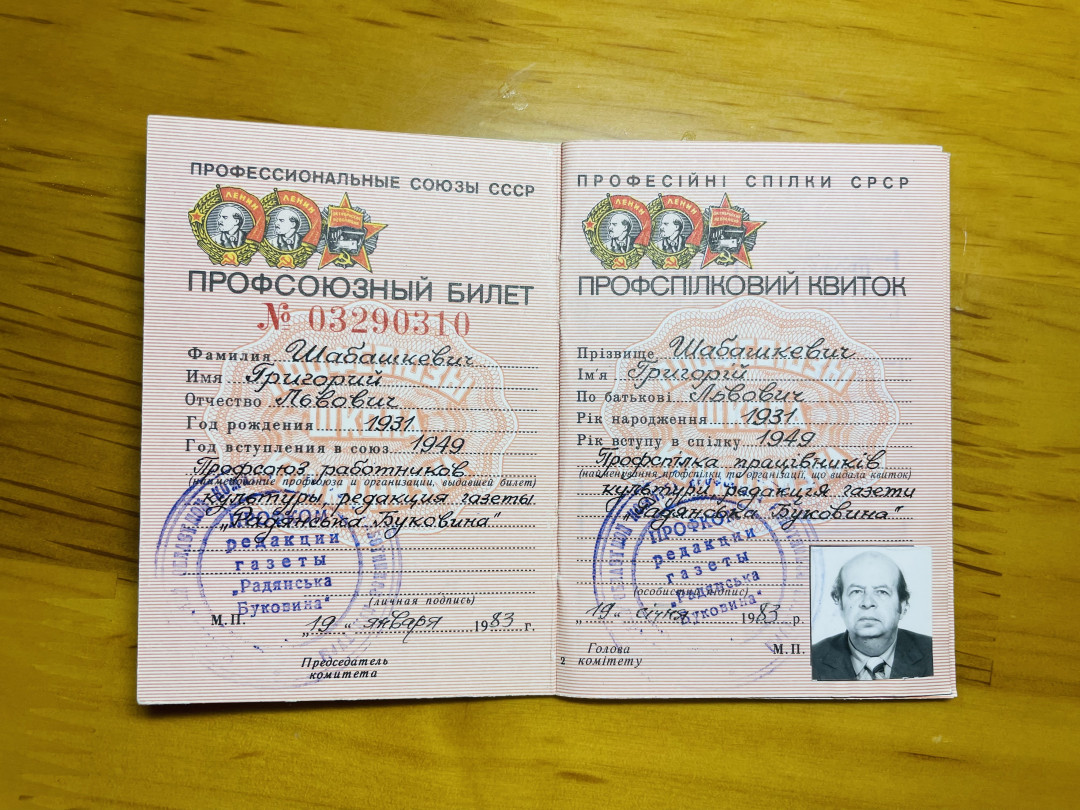 ПРОФЕССИОНАЛЬНЫЕ СОЮЗЫ СССР
ЛЕНИН ЛЕНИН
ПРОФСОЮЗНЫЙ БИЛЕТ
№ 03290310
Фамилия Шабашкевич
Имя Григорий
Отчество Львович
Год рождения 1931
Год вступления в союз 1949
Профсоюз работников
(наименование профсоюза и организации, выдавшей билет)
культуры, редакция газеты
"Радянська Буковина"
ПРОФКОМ
редакции
газеты
"Радянська
Буковина"
(личная подпись)
М.П. „19" января 1983 г.
Председатель
комитета
ПРОФЕСІЙНІ СПІЛКИ СРСР
ЛЕНИН ЛЕНИН
ПРОФСПІЛКОВИЙ КВИТОК
Прізвище Шабашкевич
Ім'я Григорій
По батькові Львович
Рік народження 1931
Рік вступу в спілку 1949
Профспілка працівників
(найменування профспілки та організації, що видала квиток)
культури, редакція газети
"Радянська Буковина"
ПРОФКОМ
редакции
газеты
"Радянська
Буковина"
(особистий підпис)
„19" січня 1983 р.
Голова
комітету
М.П.
2